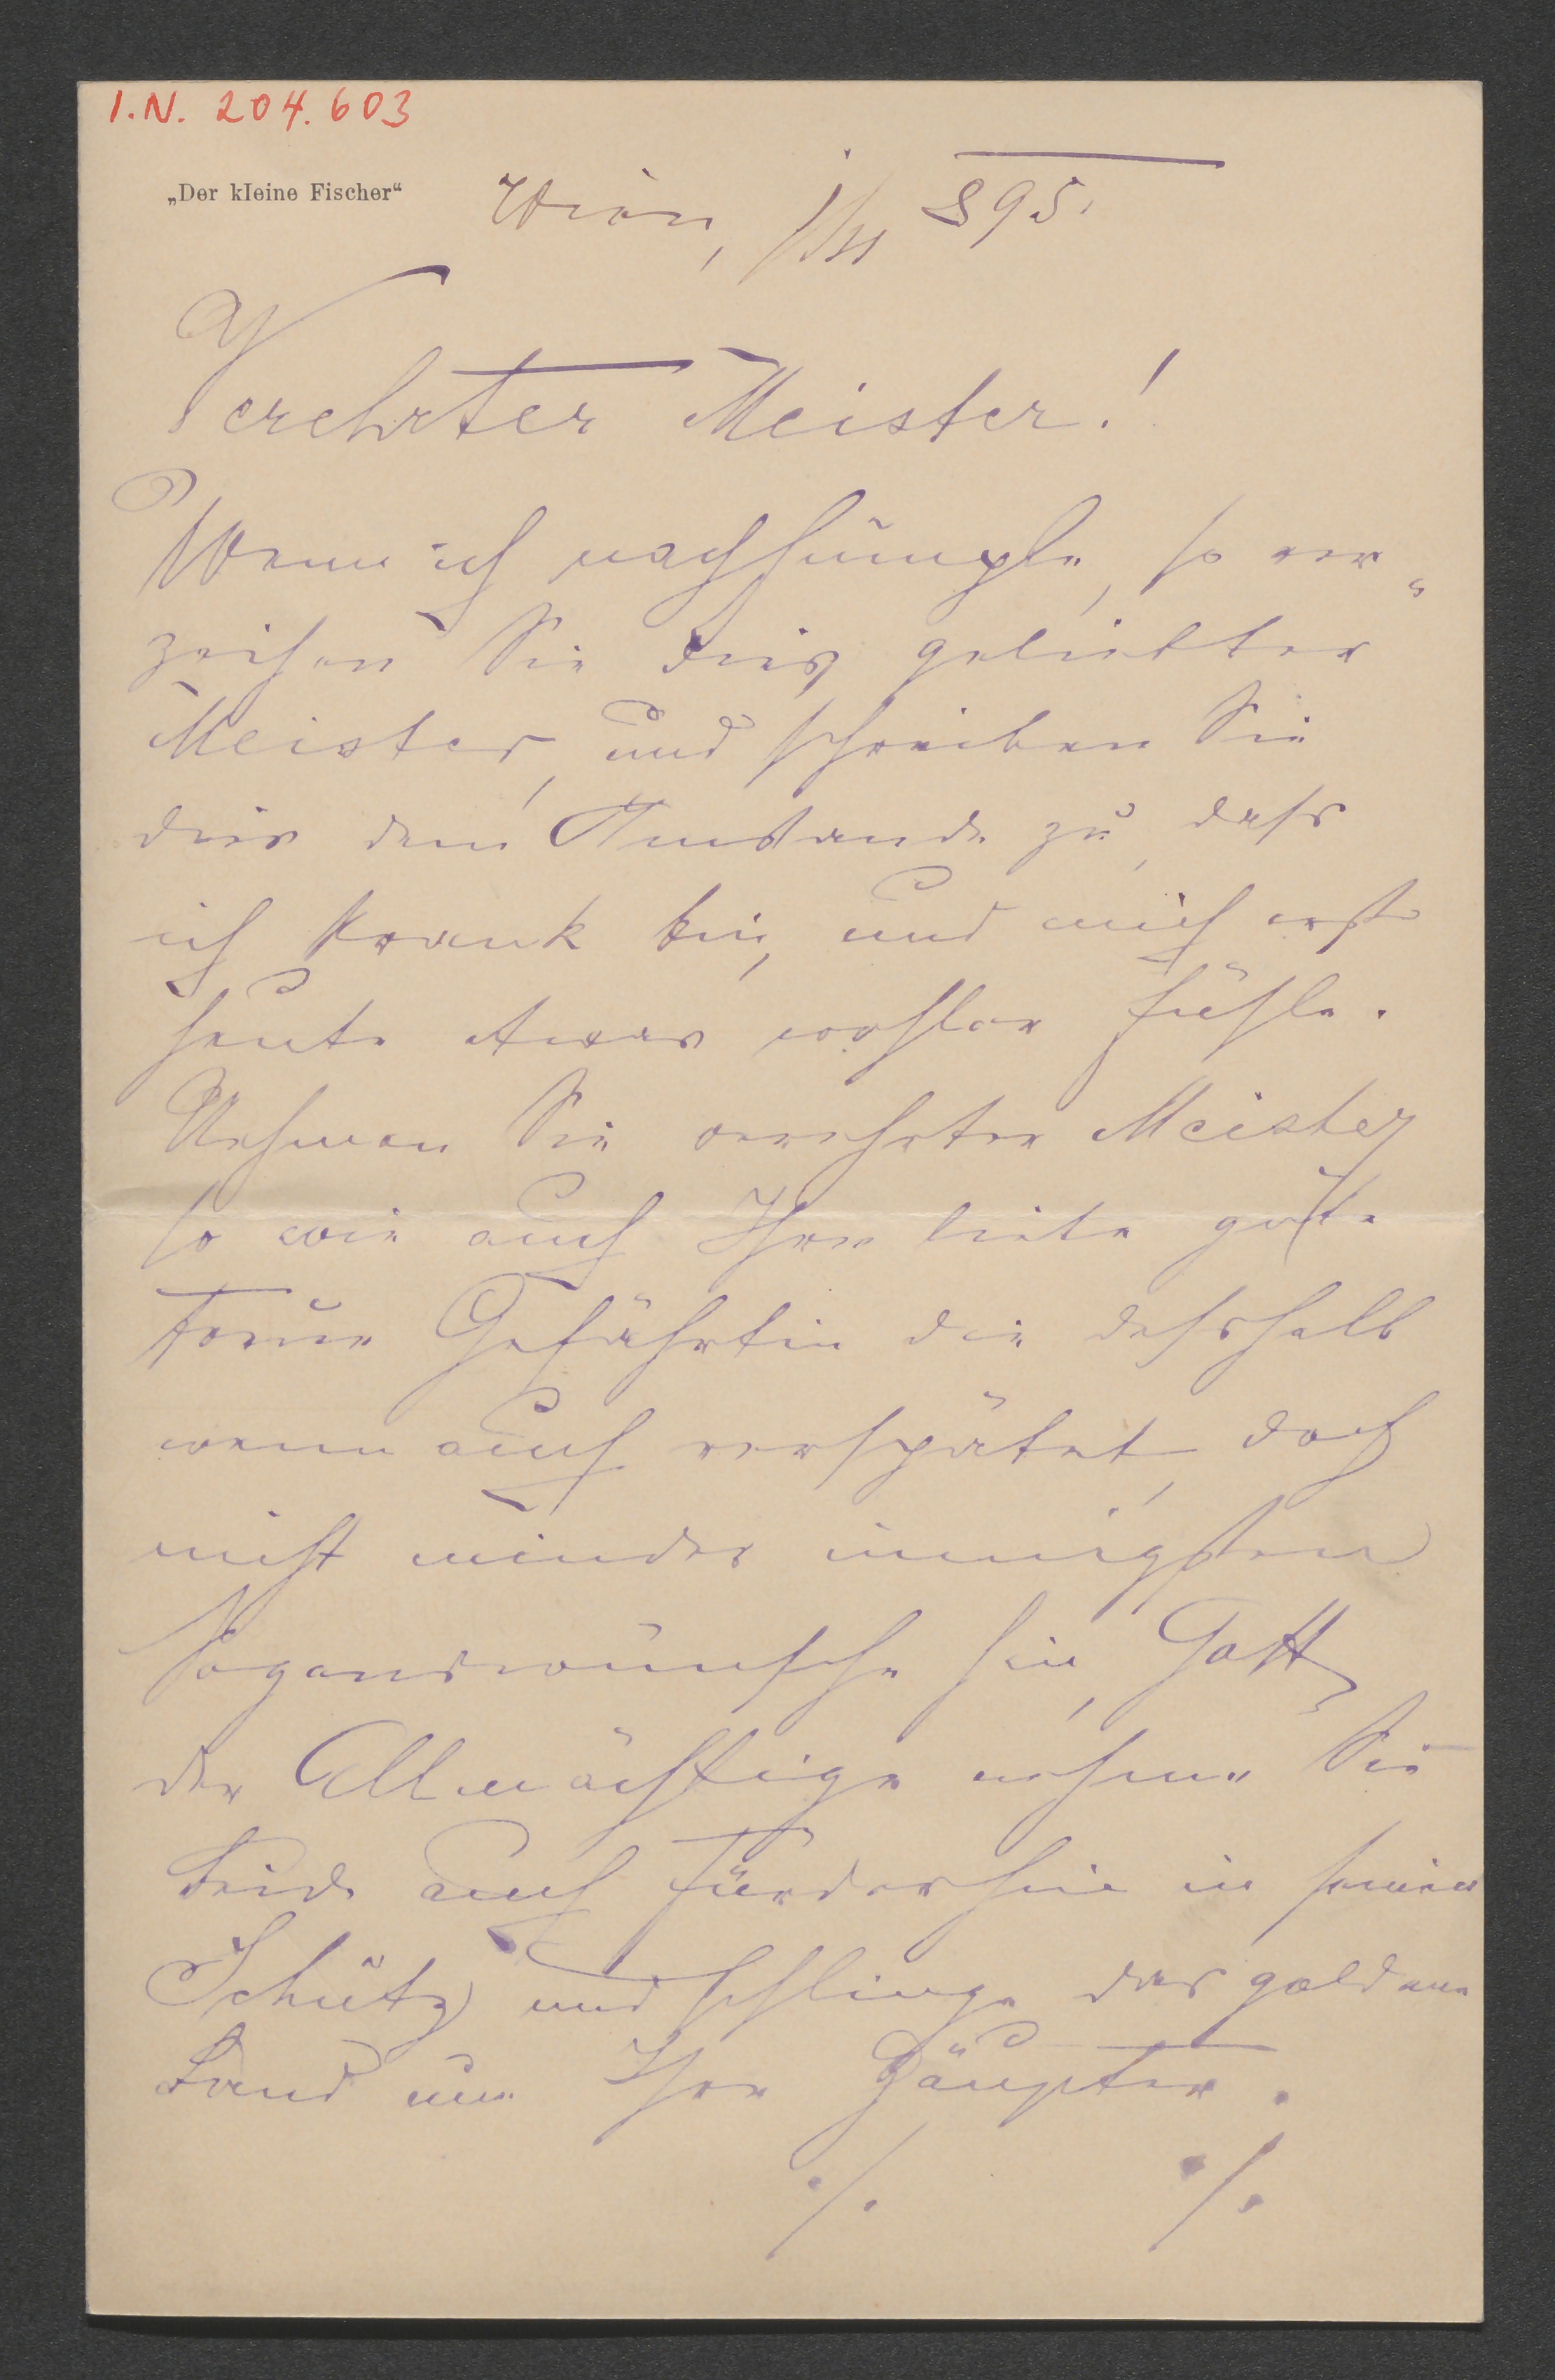 I.N. 204.603
„Der kleine Fischer“
Wien, 1/11 895.
Verehrter Meister!
Wenn ich nachhümple, so ver„
zeihen Sie dies geliebter
Meister, und schreiben Sie
dies dem Umstande zu, dass
ich krank bin, und mich erst
heute etwas wohler fühle.
Nehmen Sie verehrter Meister
so wie auch Ihre liebe gute
treue Gefährtin die desshalb
wenn auch verspätet, doch
nicht minder innigsten
Segenswünsche hin, Gott
der Allmächtige nehme Sie
beide auch fürderhin in seinen
Schutz und schlinge das goldene
Band um Ihre Häupter.
./. ./.